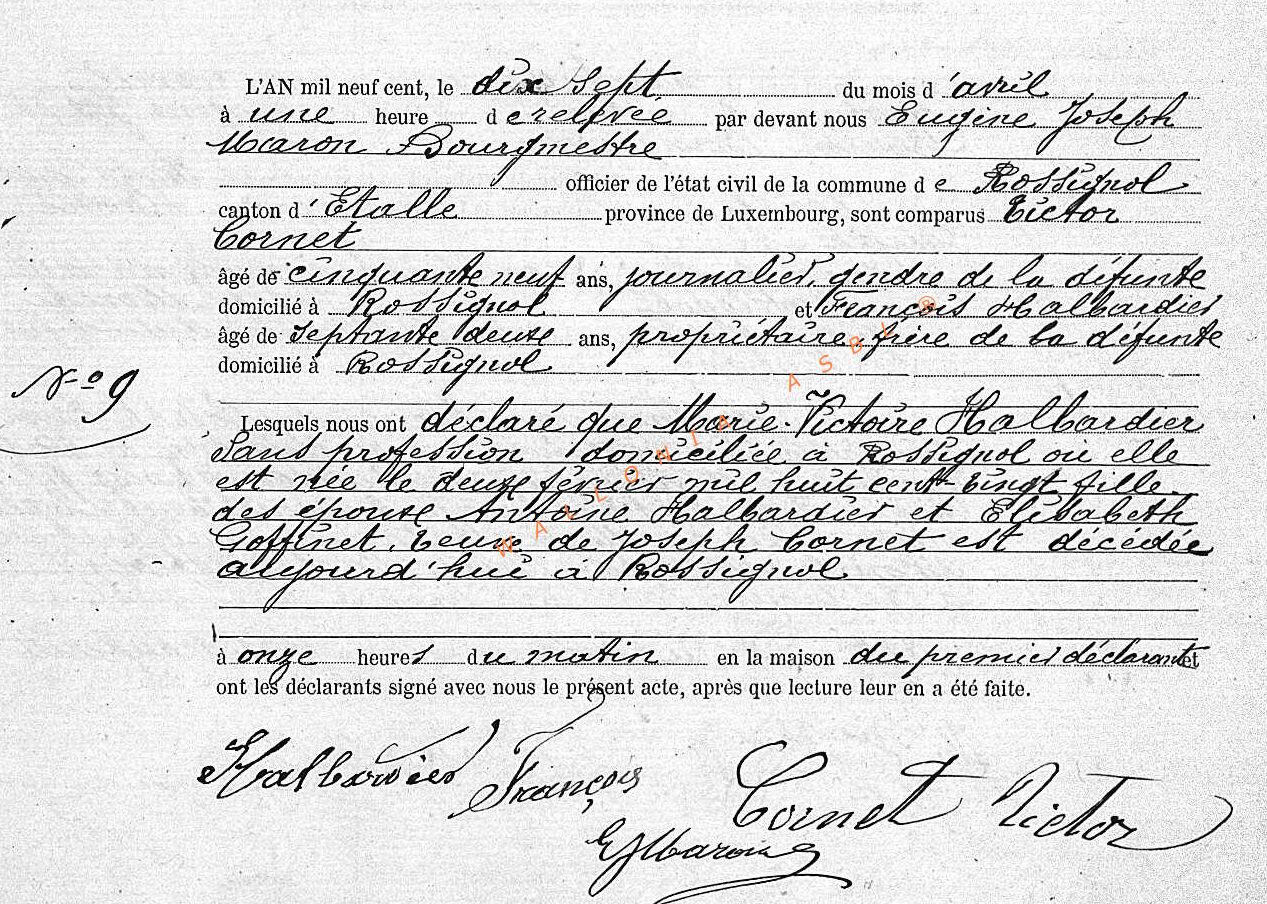 L'AN mil neuf cent, le dix sept du mois d'avril
à une heure de relevée par devant nous Eugène Joseph
Maron Bourgmestre
officier de l'état civil de la commune de Rossignol
canton d'Etalle province de Luxembourg, sont comparus Victor
Cornet
âgé de cinquante neuf ans, journalier, gendre de la défunte
domicilié à Rossignol et François Halbardier
âgé de septante deuxe ans, propriétaire, frère de la défunte
domicilié à Rossignol
N° 9
Lesquels nous ont déclaré que Marie-Victoire Halbardier
Sans profession domiciliée à Rossignol où elle
est née le deuxe février mil huit cent vingt fille
des épouse Antoine Halbardier et Elisabeth
Goffinet, veuve de Joseph Cornet est décédée
aujourd'hui à Rossignol
à onze heures du matin en la maison du premier déclarant et
ont les déclarants signé avec nous le présent acte, après que lecture leur en a été faite.
Halbardier François
Cornet Victor
EJMaron
WALLONIA ASBL ®